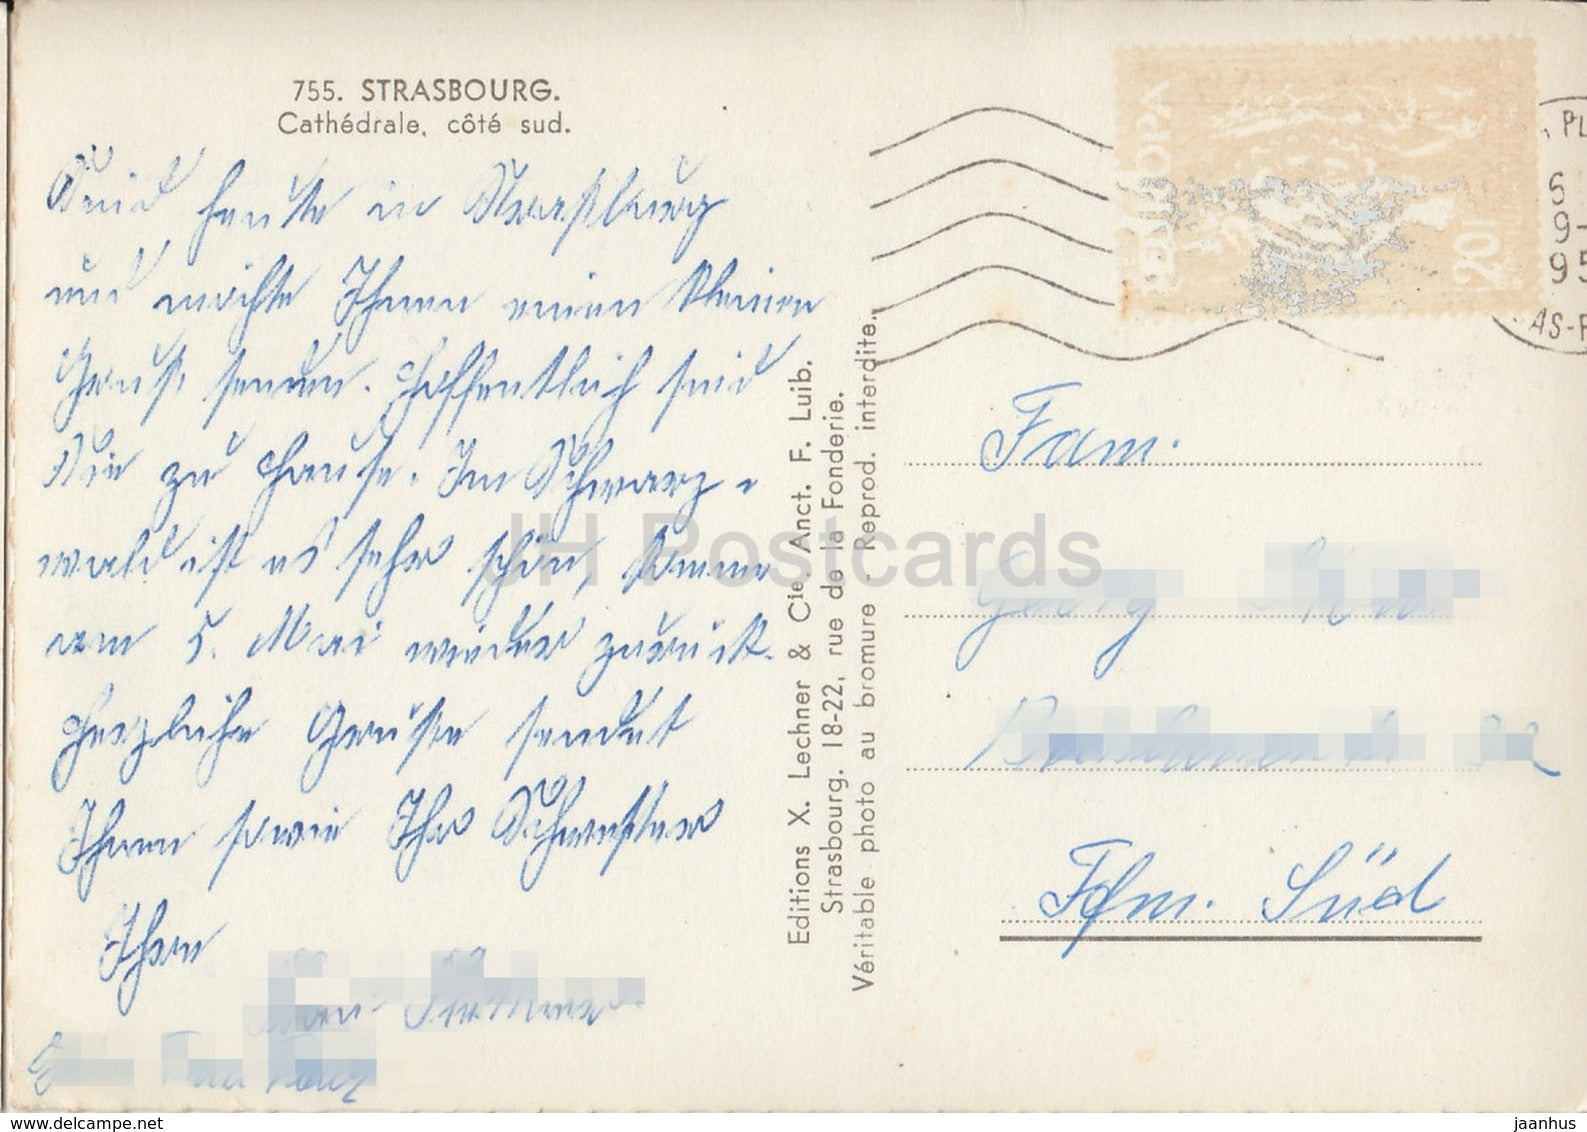 755. STRASBOURG.
Cathédrale, côté sud.
Sind heute in Straßburg
und möchte Ihnen einen kleinen
Gruß senden. Hoffentlich sind
Sie zu Hause. Im Schwarz-
wald ist es sehr schön, komme
am 5. Mai wieder zurück.
Herzliche Grüße sendet
Ihnen sowie Ihr Schwester
Ihre
Editions X. Lechner & Cie. Anct. F. Luib.
Strasbourg. 18-22, rue de la Fonderie.
Véritable photo au bromure . Reprod. interdite.
EUROPA
20
PL
S
9-
95
AS-R
Fam.
Georg
Ffm. Süd
JH Postcards
www.delcampe.net
jaanhus